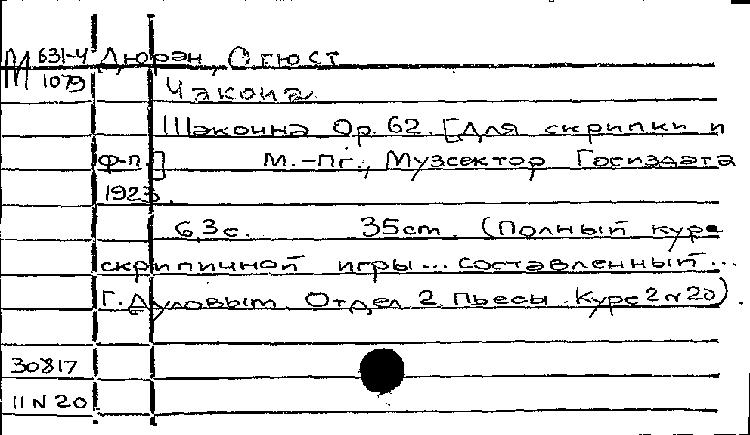 М 631-4 Дюрэн, Огюст
1079
Чакона
Шаконна Op. 62. [Для скрипки и
ф-п.] М.-Пг., Музсектор Госиздата
1923.
6,3 с. 35cm. (Полный курс
скрипичной игры... составленный...
Г. Дуловым. Отдел 2 Пьесы. Курс 2 N 20).
30817
II N 20